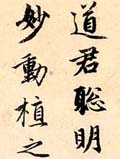 道君聰明
妙動植之